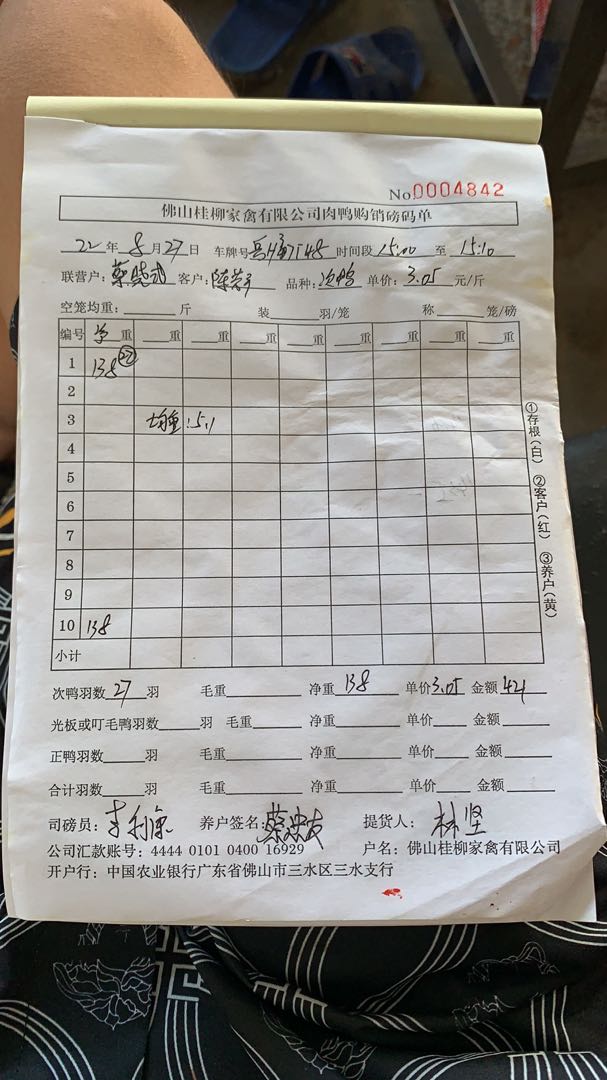 No0004842
佛山桂柳家禽有限公司肉鸭购销磅码单
22年8月27日 车牌号 时间段15:00至15:10
联营户: 客户: 品种:次鸭 单价:3.05元/斤
空笼均重: 斤 装 羽/笼 称 笼/磅
编号 重 重 重 重 重 重 重 重
1 138 27
2
3 均重:5.1
4
5
6
7
8
9
10 138
小计
①存根(白) ②客户(红) ③养户(黄)
次鸭羽数27羽 毛重 净重138 单价3.05 金额421
光板或叮毛鸭羽数 羽 毛重 净重 单价 金额
正鸭羽数 羽 毛重 净重 单价 金额
合计羽数 羽 毛重 净重 单价 金额
司磅员: 养户签名: 提货人:林坚
公司汇款账号:4444 0101 0400 16929 户名:佛山桂柳家禽有限公司
开户行:中国农业银行广东省佛山市三水区三水支行